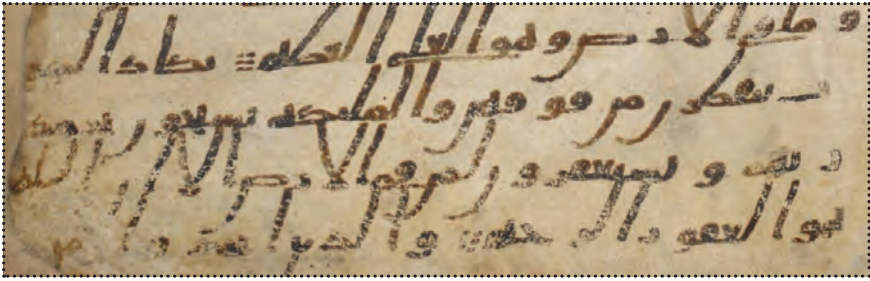 و ما في الارض وهو العلي العظيم تكاد السمو
ت يتفطرن من فوقهن والملئكة يسبحون بحمد
ربهم ويستغفرون لمن في الارض الا ان الله
هو الغفور الرحيم والذين اتخذوا من